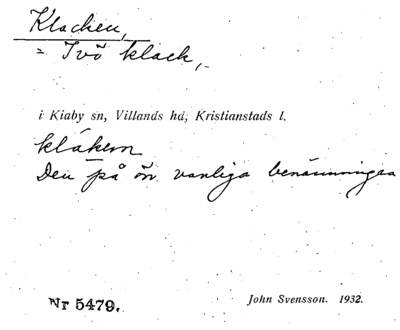 Klacken,
= Ivö klack,
i Kiaby sn, Villands hd, Kristianstads l.
klákern
Den på ön vanliga benämningen
Nr 5479.
John Svensson. 1932.